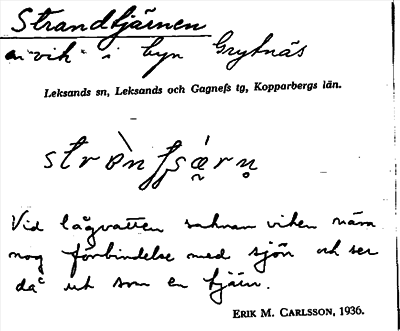 Strandtjärnen
"vik" i byn Grytnäs
Leksands sn, Leksands och Gagnefs tg, Kopparbergs län.
Vid lågvatten saknar viken näm
nog förbindelse med sjön och ser
då ut som en tjärn.
ERIK M. CARLSSON, 1936.